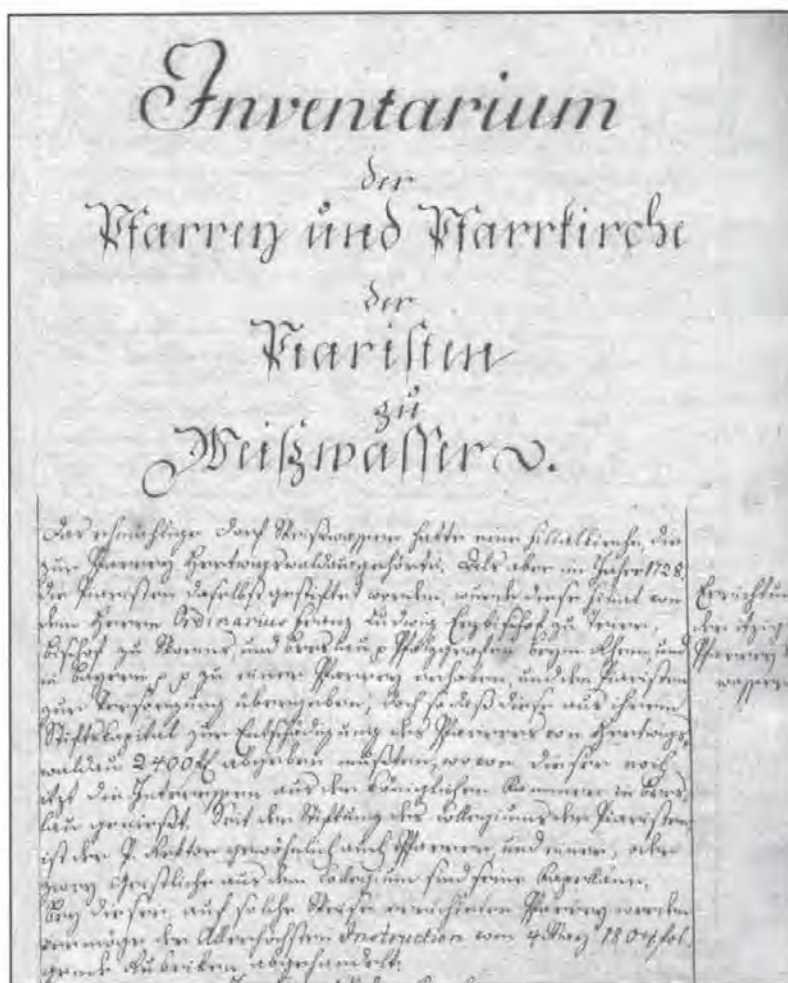 Inventarium
der
Pfarrey und Pfarrkirche
der
Piaristen
zu
Weißwasser.
Das ehmahlige Dorf Weißwasser hatte eine Filialkirche, die
zur Pfarrey Hertwigswaldau gehörte. Als aber im Jahre 1728.
die Piaristen daselbst gestiftet worden, wurde diese Filial von
dem Herrn Ordinarius Franz Ludwig Erzbischof zu Trier,
Bischof zu Worms, und Breslau p Pfalzgrafen beym Rhein, und
in Bayern p. p zu einer Pfarrey erhoben, und den Piaristen
zur Versorgung übergeben, doch so daß diese aus ihrem
Stiftskapital zur Entschädigung des Pfarrers von Hertwigs-
waldau 2400 abgeben mußten, wovon dieser noch
itzt die Interessen aus der Königlichen Kammer in Bres-
lau genießt. Seit der Stiftung des Collegiums der Piaristen
ist der P. Rektor gewöhnlich auch Pfarrer, und einer, oder
zwey Geistliche aus dem Collegium sind seine Kapeläne.
Bey dieser, auf solche Weise errichteten Pfarrey werden
vermöge der Allerhöchsten Instruction vom 4 May 1804 fol-
gende Rubriken abgehandelt:
Errichtung
der itzigen
Pfarrey
wasser